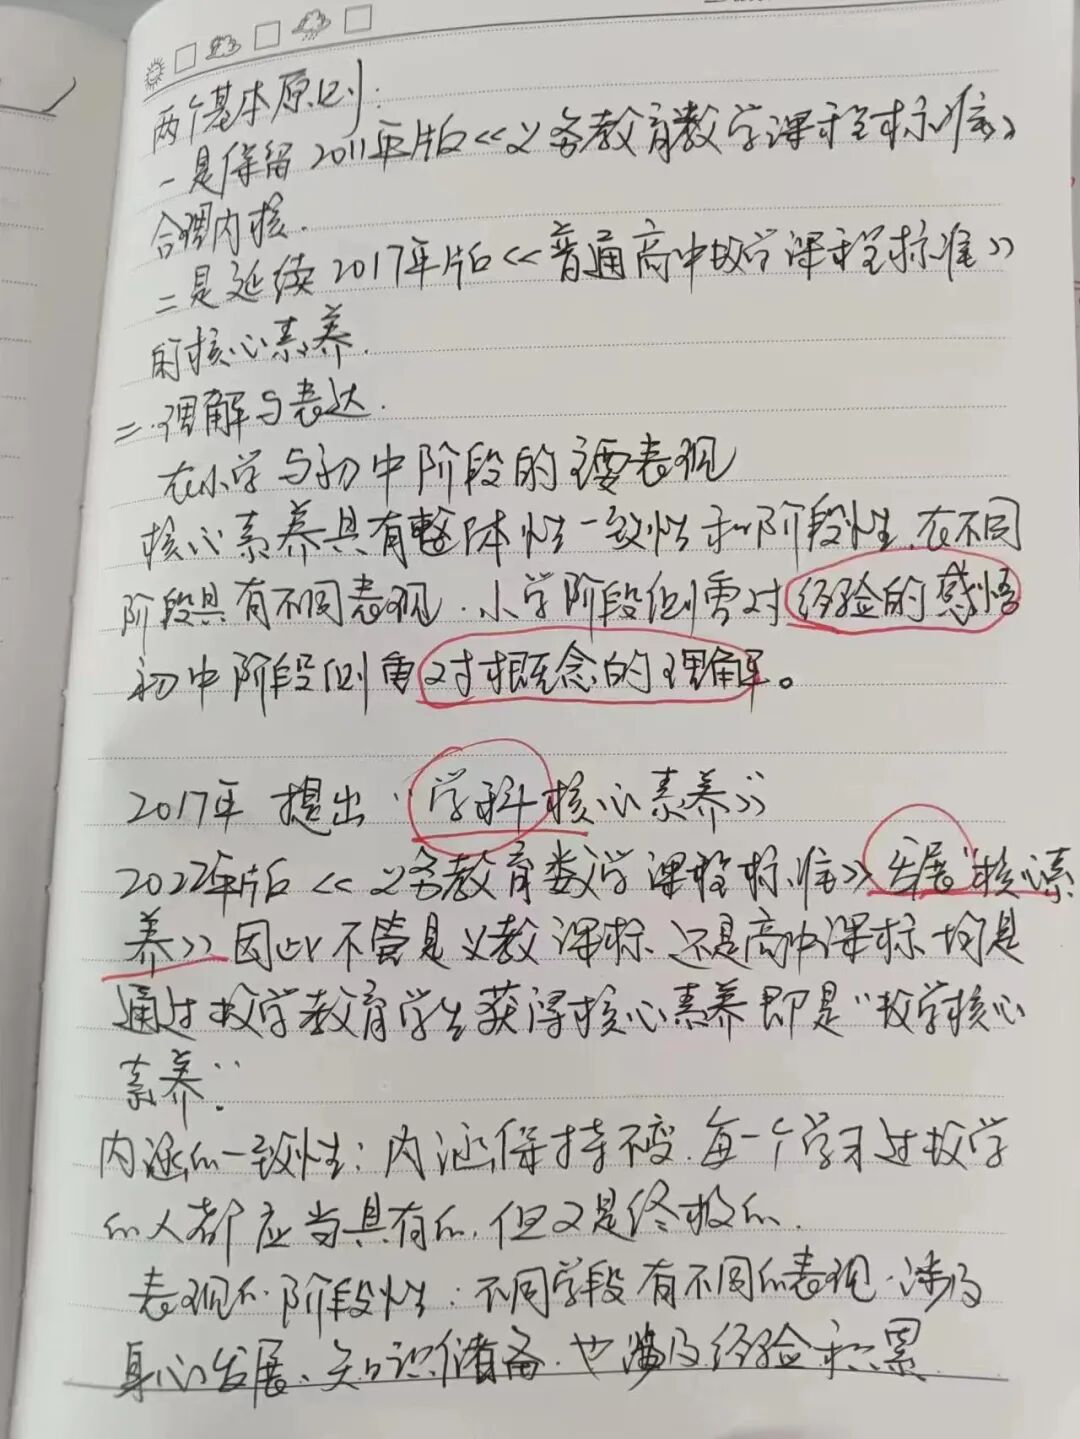 两个基本原则:
一是保留2011年版《义务教育数学课程标准》
合理内核.
二是延续2017年版《普通高中数学课程标准》
的核心素养.
二.理解与表达.
在小学与初中阶段的主要表现
核心素养具有整体性一致性和阶段性.在不同
阶段具有不同表现.小学阶段侧重对经验的感悟
初中阶段侧重对概念的理解。
2017年 提出 “学科核心素养》
2022年版《义务教育数学课程标准》发展“核心素
养》因此不管是义教课标.还是高中课标.均是
通过数学教育学生获得核心素养即是“数学核心
素养.”
内涵的一致性:内涵保持不变.每一个学习过数学
的人都应当具有的.但又是终极的.
表现的阶段性:不同学段有不同的表现.涉及
身心发展、知识储备.也涉及经验积累